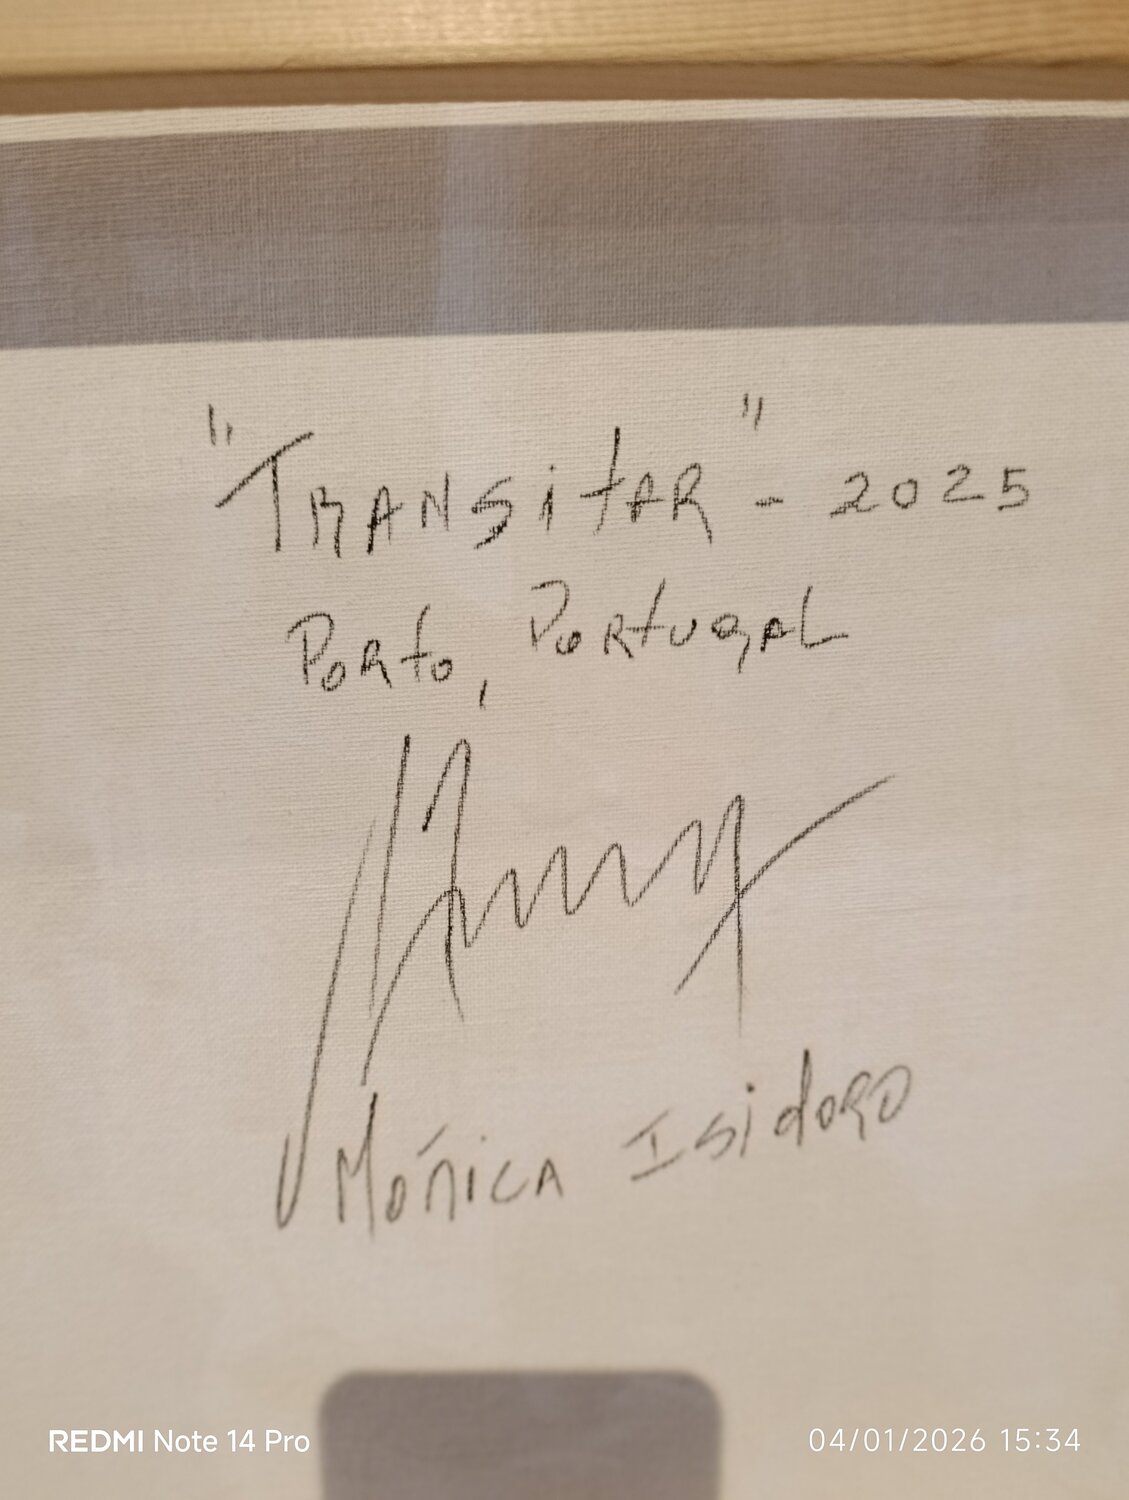 "TRANSitAR" - 2025
Porto, Portugal
Mónica Isidoro
REDMI Note 14 Pro
04/01/2026 15:34